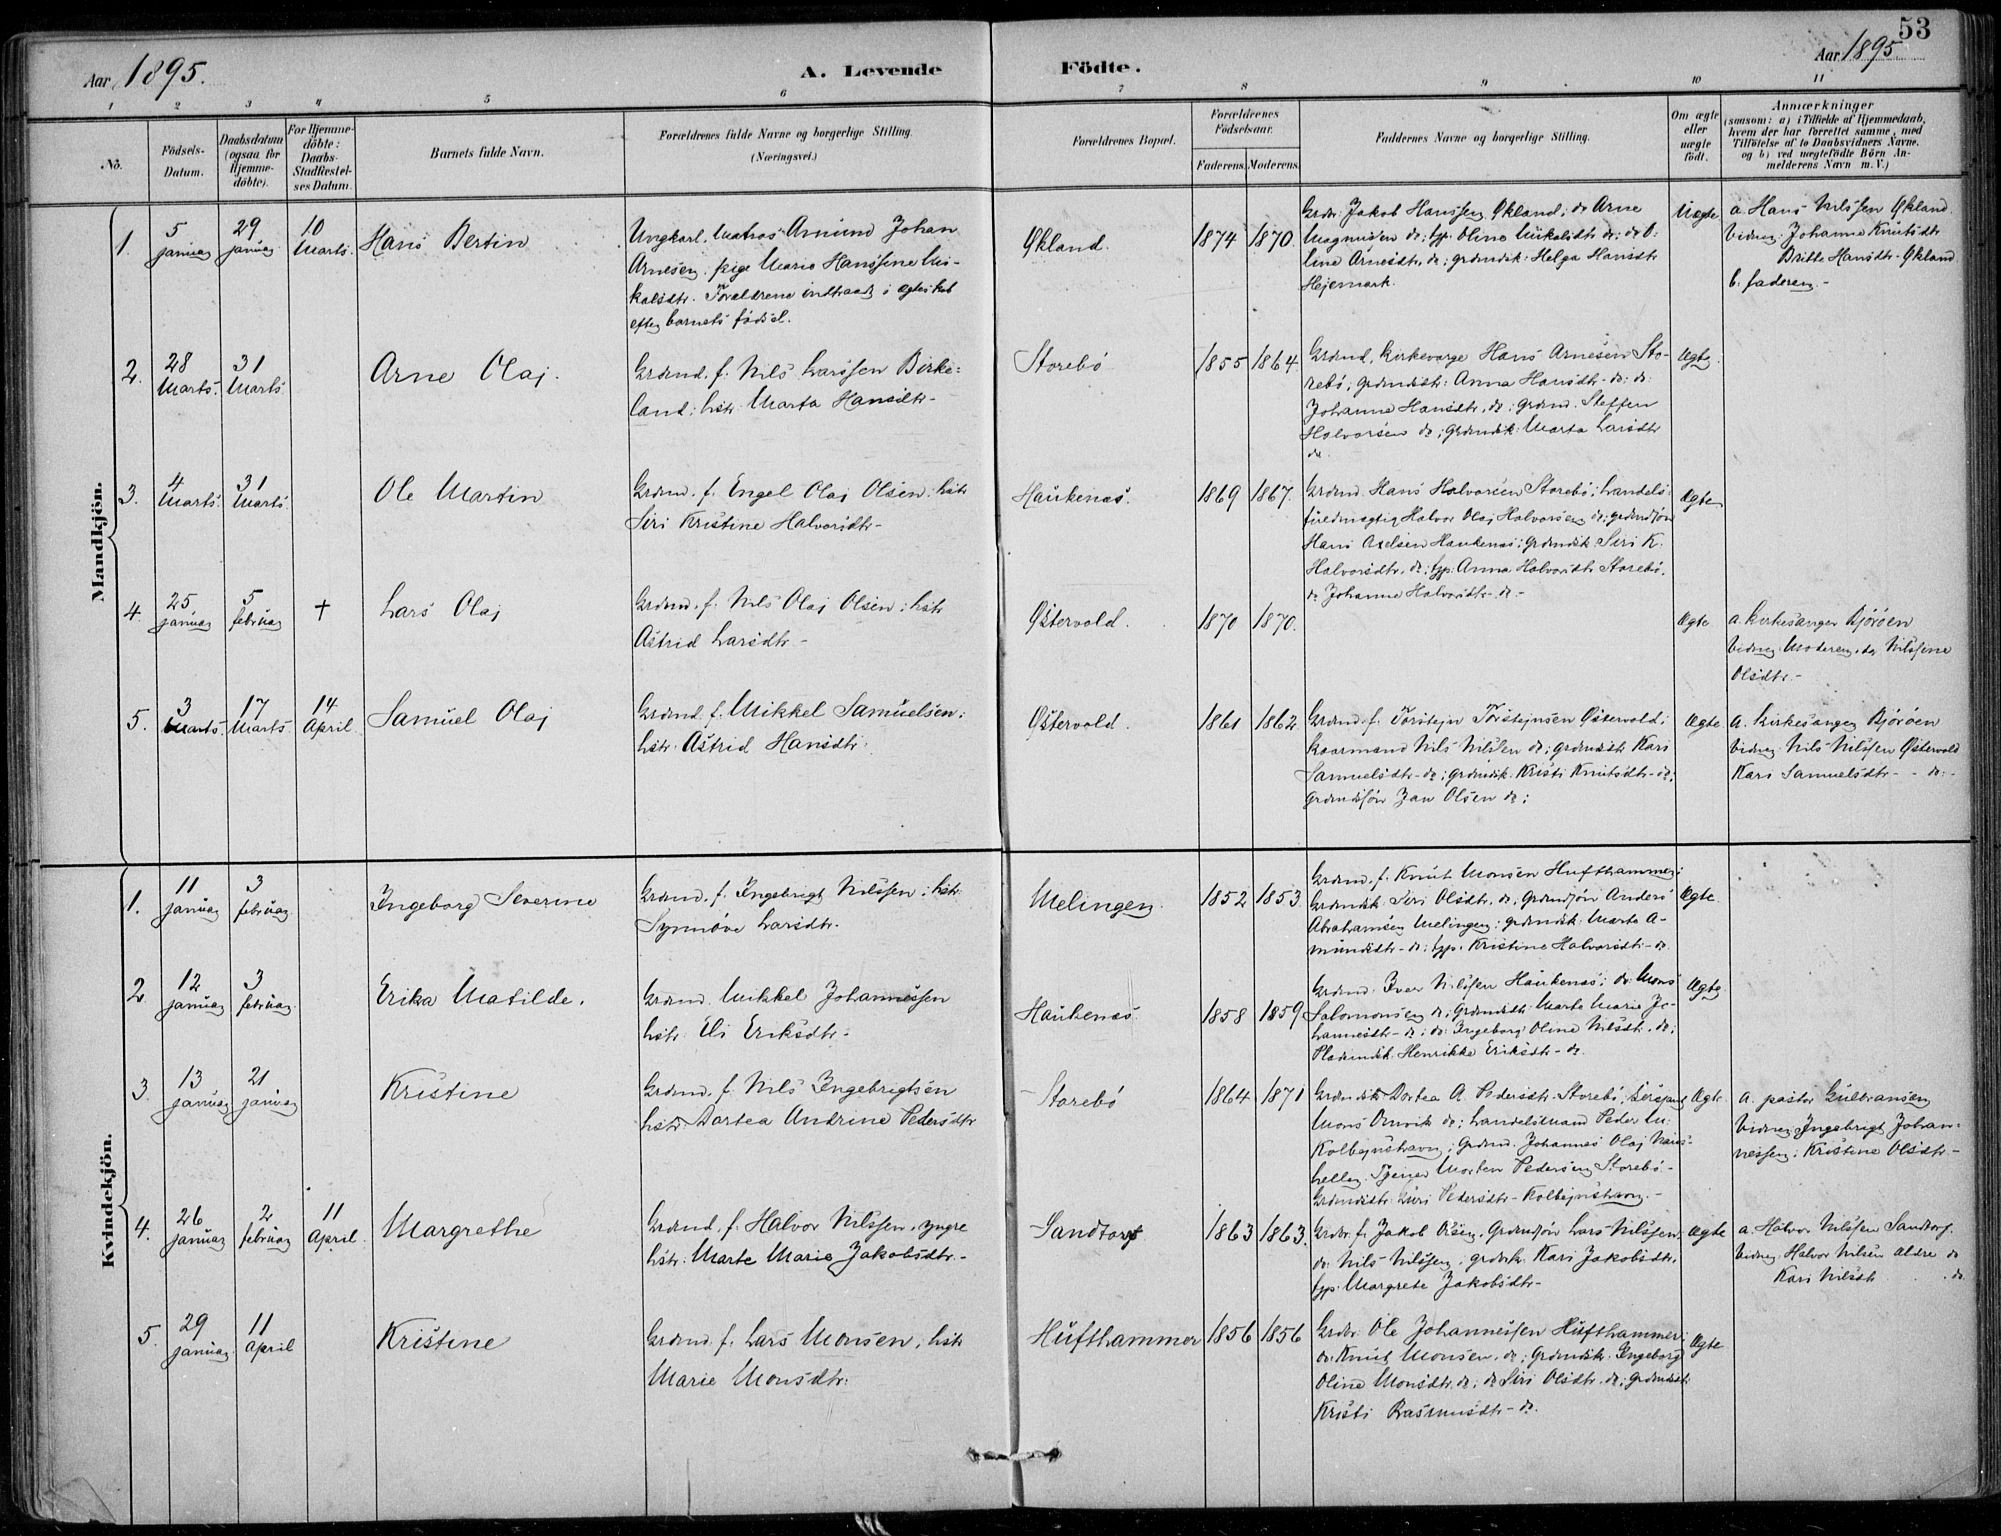 53
Aar 1895.
A. Levende
Födte.
Aar 1895
1
2
3
4
5
6
7
8
9
10
11
No.
Födsels-
Datum.
Daabsdatum
(ogsaa for
Hjemme-
döbte).
For Hjemme-
döbte:
Daabs-
Stadfæstel-
ses Datum.
Barnets fulde Navn.
Forældrenes fulde Navne og borgerlige Stilling.
(Næringsvei.)
Forældrenes Bopæl.
Forældrenes
Födselsaar.
Faderens.
Moderens.
Faddernes Navne og borgerlige Stilling.
Om ægte
eller
uægte
födt.
Anmærkninger
(saasom: a) i Tilfælde af Hjemmedaab,
hvem der har forrettet samme, med
Tilföielse af to Daabsvidners Navne.
og b) ved uægtefödte Börn An-
melderens Navn m. V.)
Mandkjön.
1.
5
januar
29
januar
10
Marts.
Hans Bertin
Ungkarl, Matros Amund Johan
Arnesen, pige Marie Hanssine Mi-
kalsdtr. Forældrene indtraadt i ægteskab
efter barnets födsel.
Økland.
1874
1870.
Grdbr. Jakob Hanssen Økland; do Arne
Magnusen do; typ. Oline Mikalsdtr do; do O-
line Arnesdtr. do; grdmdsk. Helga Hansdtr
Hejemark.
Uægte
a. Hans Nilssen Økland
Vidner: Johanne Knutsdtr
Britte Hansdtr Økland
b. faderen.-
2.
28
Marts.
31
Marts.
Arne Olaj.
Grdmd. f. Nils Larssen Birke-
land; hstr. Marta Hansdtr-
Storebö
1855
1864.
Grdmd, Kirkeværge Hans Arnesen Sto-
rebö; grdmdsdtr: Anna Hansdtr- do; do
Johanne Hansdtr. do; grdmd. Steffen
Halvorsen do; grdmdsk. Marta Larsdtr
do.
Ægte.
3.
4
Marts.
31
Marts
Ole Martin
Grdmd. f. Engel Olaj Olsen; hstr
Siri Kristine Halvorsdtr-
Haukenæs.
1869
1867.
Grdmd. Hans Halvorsen Storebö; handels-
fuldmægtig Halvor Olaj Halvorsen do; grdmdsön
Hans Axelsen Haukenæs; grdmdsk. Siri K.
Halvorsdtr. do; typ. Anna Halvorsdtr Storebö,
do Johanne Halvorsdtr. do.-
Ægte
4.
25
januar
5
februar
†
Lars Olaj
Grdmd. f. Nils Olaj Olsen; hstr
Astrid Larsdtr-
Østervold.
1870
1870.
Ægte
a. Kirkesanger Björöen
Vidner: Moderen, do Nilssine
Olsdtr.-
5.
3
Marts.
17
Marts
14
April
Samuel Olaj
Grdmd. f. Mikkel Samuelsen;
hstr. Astrid Hansdtr.
Østervold.
1861
1862.
Grdmd. f. Torstejn Torstejnsen Østervold;
kaarmand Nils Nilssen do; grdmdsdtr Kari
Samuelsdtr- do; grdmdsk. Kristi Knutsdtr- do;
grdmdsön Jan Olsen do;
Ægte
a. Kirkesanger Björöen
Vidner: Nils Nilssen Østervold
Kari Samuelsdtr- - do.-
Kvindekjön.
1.
11
januar
3
februar.
Ingeborg Severine
Grdmd. f. Ingebrigt Nilssen; hstr.
Synnöve Larsdtr.
Melingen.
1852
1853.
Grdmd. f. Knut Monsen Hufthammer;
Grdmdsk. Siri Olsdtr. do, Grdmdsön Anders
Abrahamsen Melingen; grdmdsk. Marta A-
mundsdtr- do; typ. Kristine Halvorsdtr- do
Ægte.
2
12
januar
3
februar.
Erika Matilde.
Grdmd. Mikkel Johannessen
hstr. Eli Eriksdtr-
Haukenæs
1858
1859
Grdmd. Iver Nilssen Haukenæs; do Mons
Salomonsen do; Grdmdsdtr. Marta Marie Jo-
hannesdtr- do; do Ingeborg Oline Nilsdtr. do;
Pladsmdsk. Henrikke Eriksdtr- do.
Ægte
3
13
januar
21
januar
Kristine
Grdmd. f. Nils Ingebrigtsen
hstr. Dortea Andrine Pedersdtr
Storebö
1864
1871
Grdmdsk. Dortea A. Pedersdtr. Storebö;
Mons Drivik do; handelsmand Peder M.
Kolbejnshavn; Grdmd. Johannes Olaj
Tjener Morten Pedersen Storebö-
Grdmdsdtr. Siri Pedersdtr- Kolbejnshavn.-
Ægte
a. pastor Gulbransen
Vidner: Ingebrigt Johan-
nessen; Kristine Olsdtr.-
4.
26
januar
2
februar
11
April.
Margrethe
Grdmd. f. Halvor Nilssen, yngre
hstr. Marte Marie Jakobsdtr.-
Sandtorf
1863
1863.
Grdbr. f. Jakob Olsen, Grdmdsön Lars Nilssen;
do. Nils Nilssen, grdmdsk. Kari Jakobsdtr,
typ. Margrete Jakobsdtr-
Ægte
a. Halvor Nilssen Sandtorf.
Vidner: Halvor Nilsen ældre do
Kari Nilsdtr do
5.
29
januar.
11
April
Kristine
Grdmd. f. Lars Monsen, hstr
Marie Monsdtr.
Hufthammer
1856
1856
Grdbr. Ole Johannessen Hufthammer;
do. Knut Monsen. do; Grdmdsk. Ingeborg
Oline Monsdtr. do; do Siri Olsdtr. do; grdmdsdtr.
Kristi Rasmusdtr- do.
Ægte